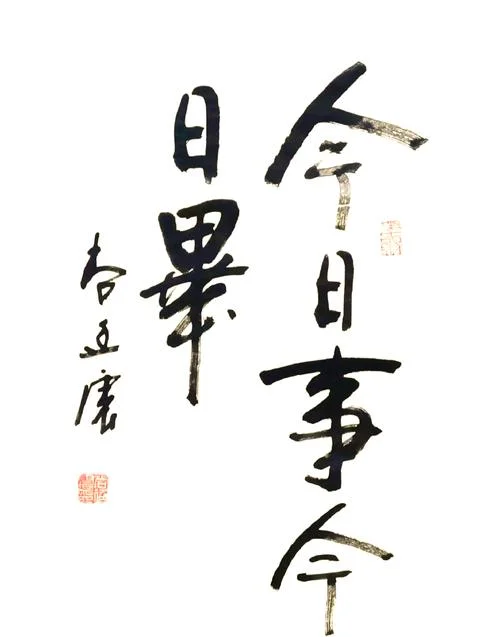 今日事今
日畢